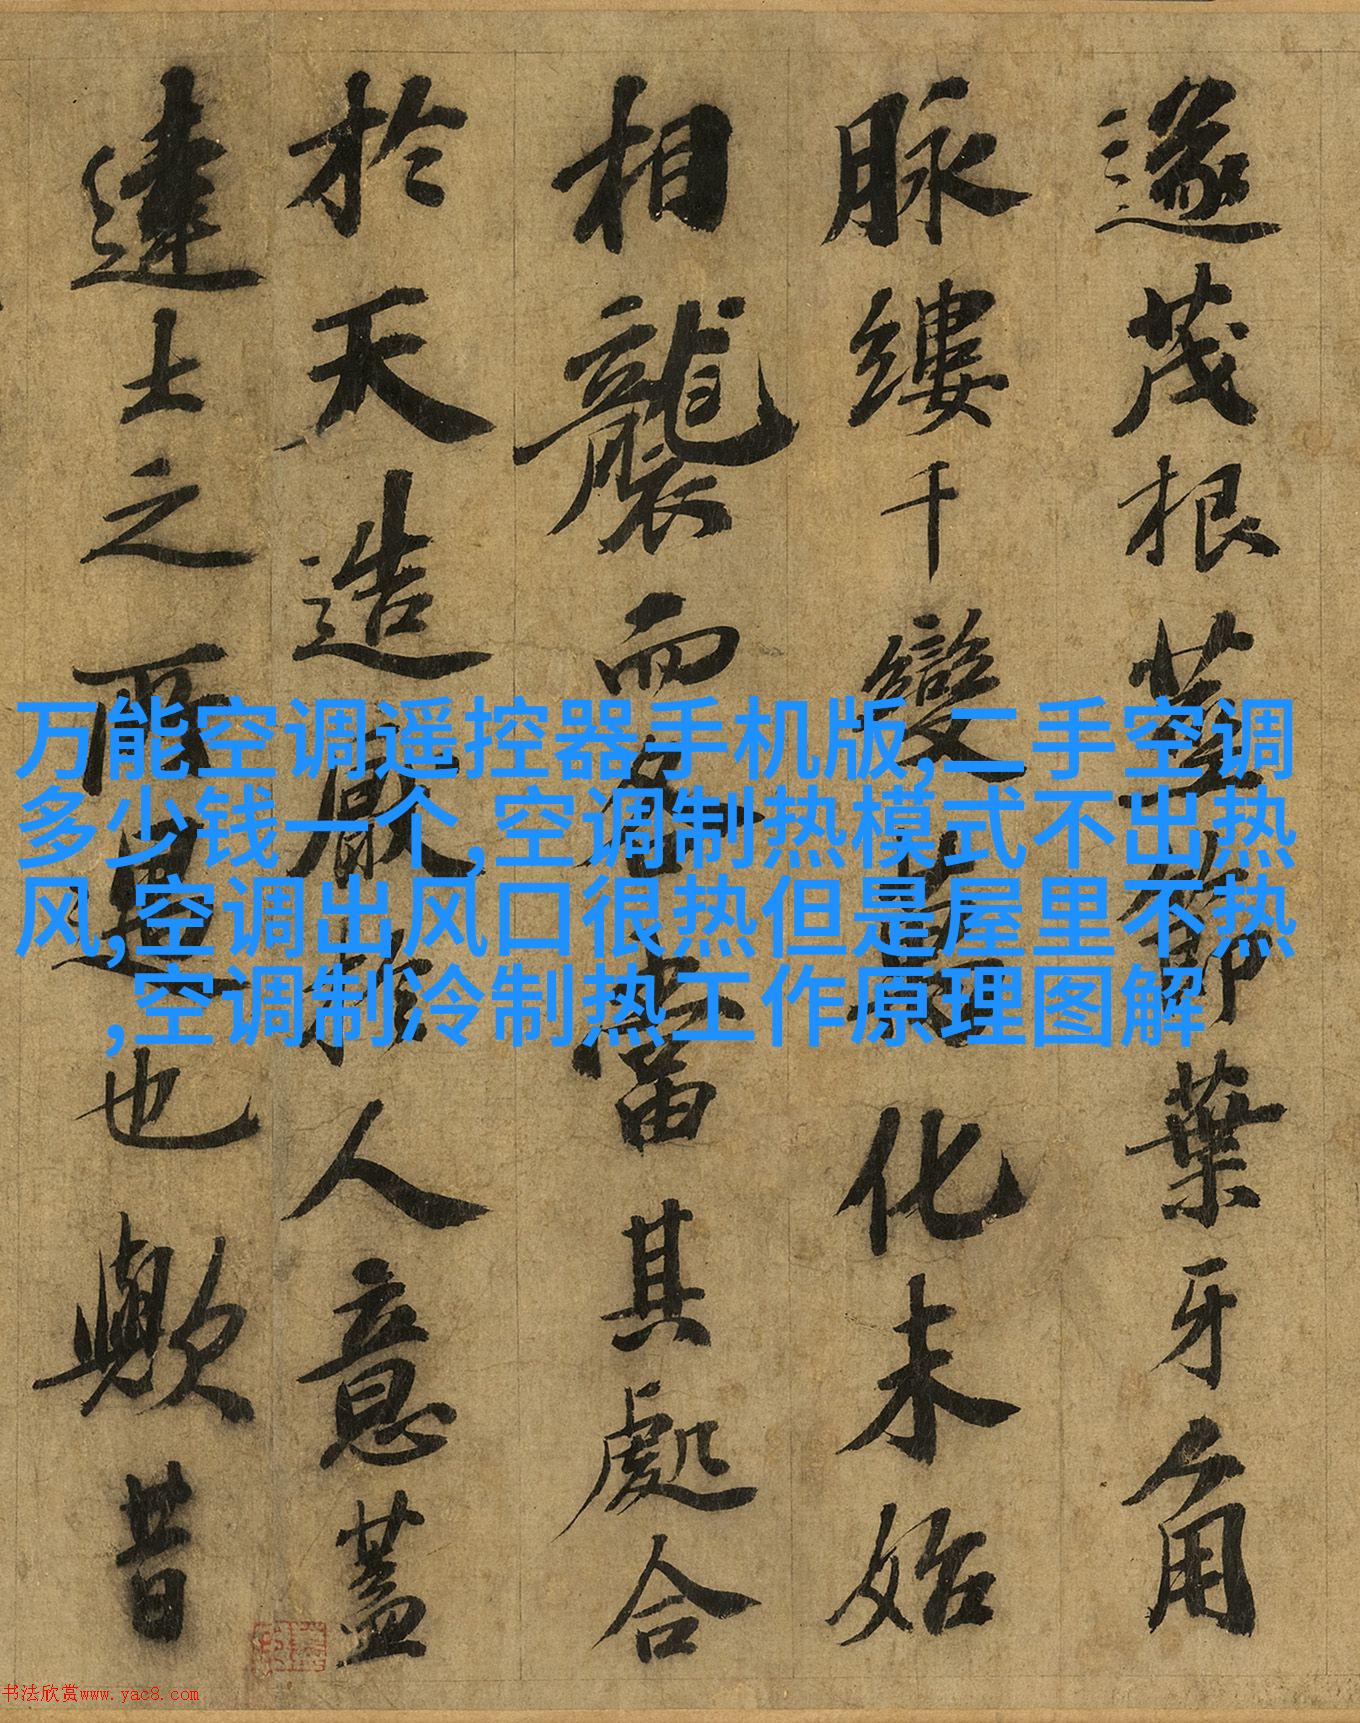 遂茂根莖節葉牙角
脉縷千變萬化未始
相襲而各當其處合
於天造厭於人意蓋
達士之所寓也歟昔
万能空调遥控器手机版,二手空调
多少钱一个,空调制热模式不出热
风,空调出风口很热但是屋里不热
,空调制冷制热工作原理图解
书法欣赏www.yac8.com